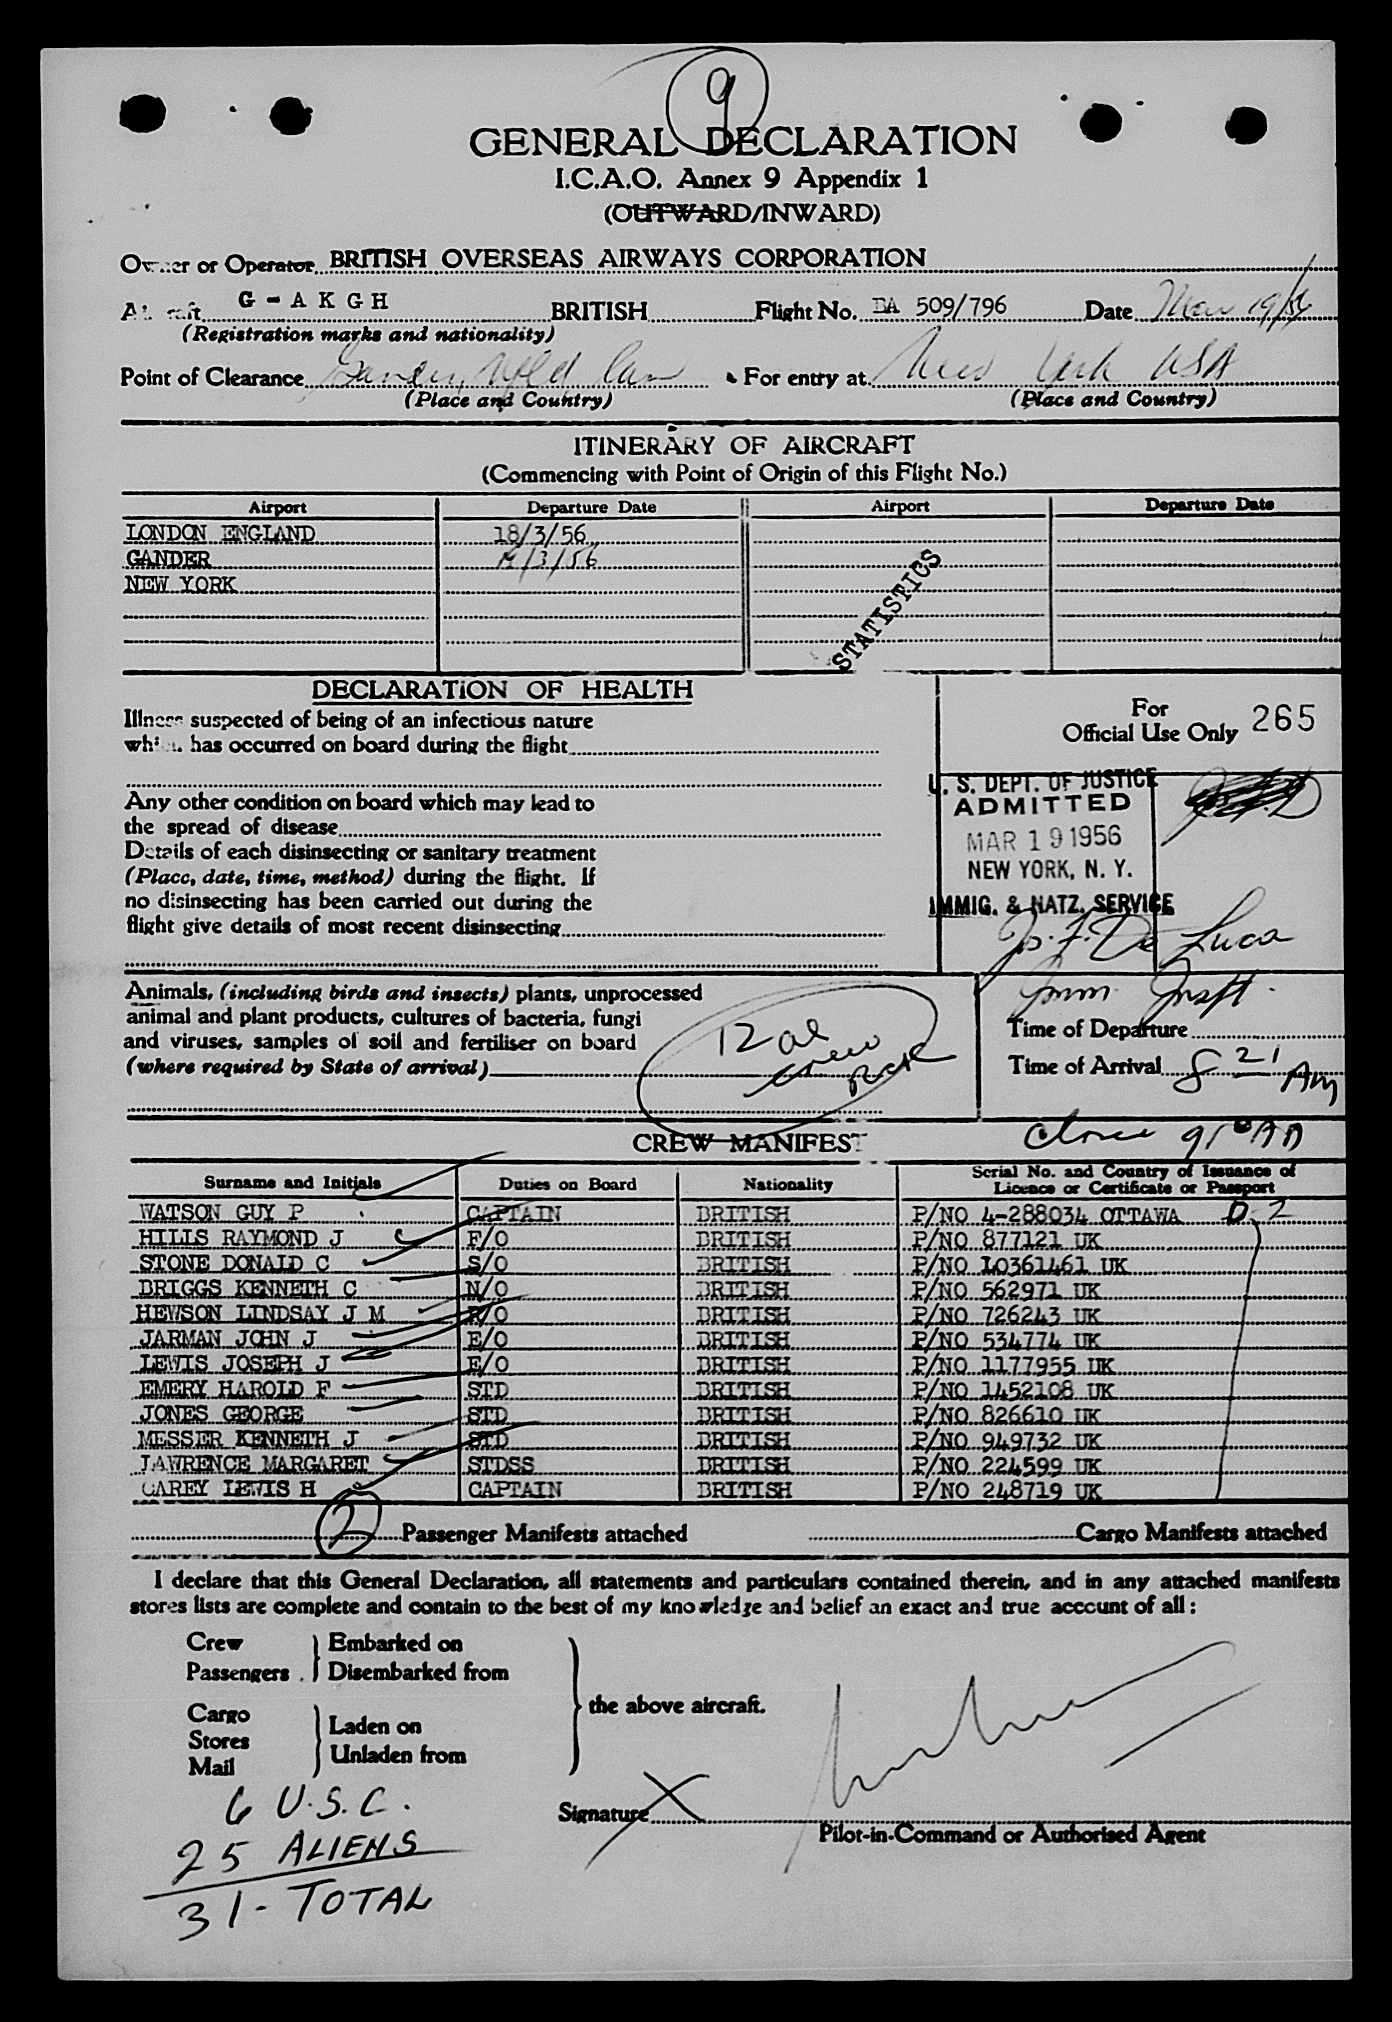 9
GENERAL DECLARATION
I.C.A.O. Annex 9 Appendix 1
(OUTWARD/INWARD)
Owner or Operator BRITISH OVERSEAS AIRWAYS CORPORATION
Aircraft G - A K G H BRITISH Flight No. BA 509/796 Date Mar 19/56
(Registration marks and nationality)
Point of Clearance Gander, Nfld Can For entry at New York USA
(Place and Country) (Place and Country)
ITINERARY OF AIRCRAFT
(Commencing with Point of Origin of this Flight No.)
Airport Departure Date Airport Departure Date
LONDON ENGLAND 18/3/56
GANDER /3/56
NEW YORK
STATISTICS
DECLARATION OF HEALTH
Illness suspected of being of an infectious nature
which has occurred on board during the flight
Any other condition on board which may lead to
the spread of disease
Details of each disinsecting or sanitary treatment
(Place, date, time, method) during the flight. If
no disinsecting has been carried out during the
flight give details of most recent disinsecting
For
Official Use Only 265
U. S. DEPT. OF JUSTICE
ADMITTED
MAR 19 1956
NEW YORK, N. Y.
IMMIG. & NATZ. SERVICE
Jos. F. De Luca
Imm. Inspt.
Animals, (including birds and insects) plants, unprocessed
animal and plant products, cultures of bacteria, fungi
and viruses, samples of soil and fertiliser on board
(where required by State of arrival)
12 al
crew
Time of Departure
Time of Arrival 8 21 AM
Close 910 AM
CREW MANIFEST
Surname and Initials Duties on Board Nationality Serial No. and Country of Issuance of Licence or Certificate or Passport
WATSON GUY P CAPTAIN BRITISH P/NO 4-288034 OTTAWA D-2
HILLS RAYMOND J F/O BRITISH P/NO 877121 UK
STONE DONALD C S/O BRITISH P/NO 10361461 UK
BRIGGS KENNETH C N/O BRITISH P/NO 562971 UK
HEWSON LINDSAY J M R/O BRITISH P/NO 726243 UK
JARMAN JOHN J E/O BRITISH P/NO 534774 UK
LEWIS JOSEPH J E/O BRITISH P/NO 1177955 UK
EMERY HAROLD F STD BRITISH P/NO 1452108 UK
JONES GEORGE STD BRITISH P/NO 826610 UK
MESSER KENNETH J STD BRITISH P/NO 949732 UK
LAWRENCE MARGARET STDSS BRITISH P/NO 224599 UK
CAREY LEWIS H CAPTAIN BRITISH P/NO 248719 UK
2 Passenger Manifests attached Cargo Manifests attached
I declare that this General Declaration, all statements and particulars contained therein, and in any attached manifests
stores lists are complete and contain to the best of my knowledge and belief an exact and true account of all:
Crew Embarked on
Passengers Disembarked from
the above aircraft.
Cargo Laden on
Stores
Mail Unladen from
6 U.S.C.
25 ALIENS
31 - TOTAL
Signature X
Pilot-in-Command or Authorised Agent